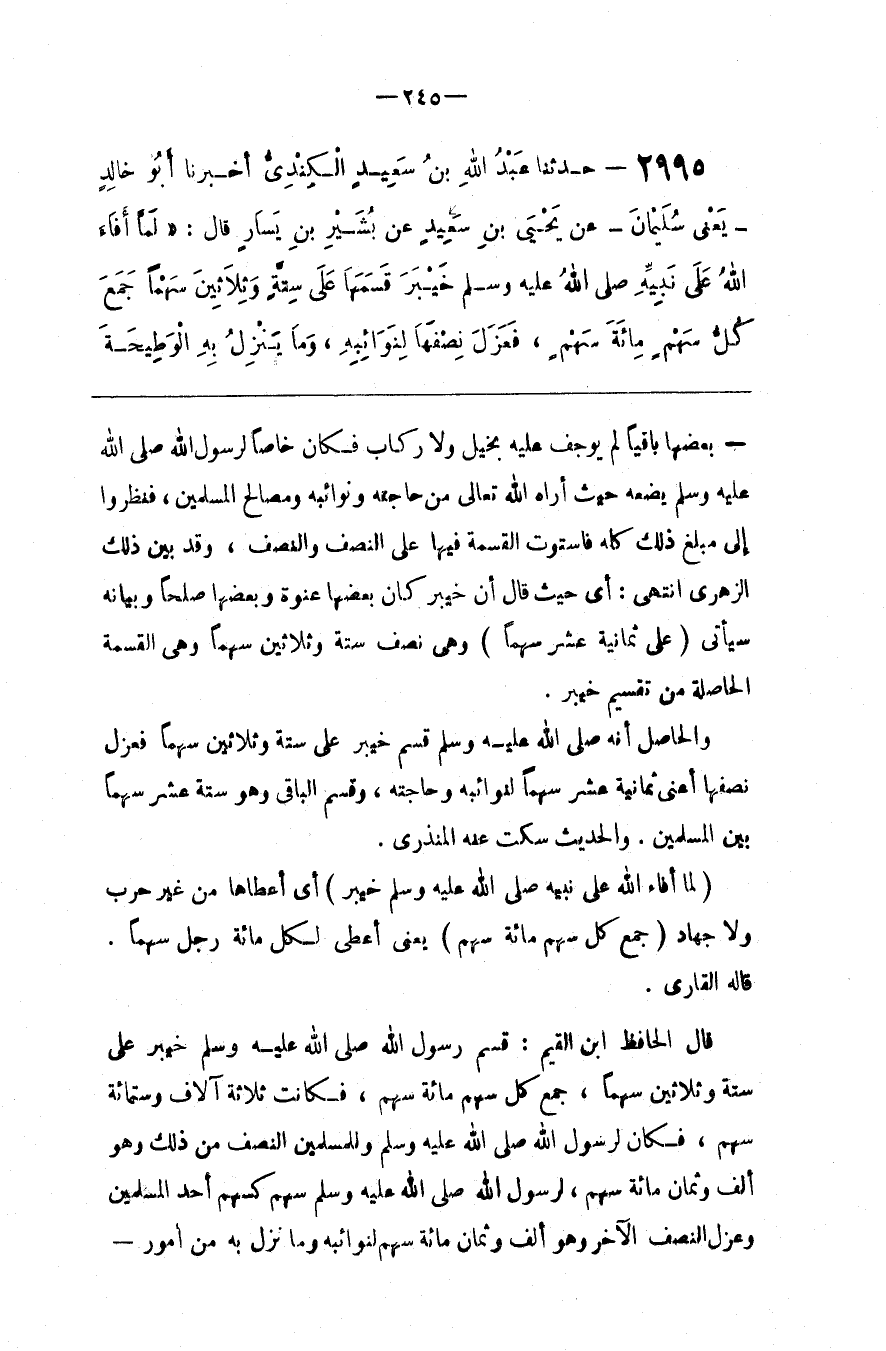 —٢٤٥—
٢٩٩٥ — حـدثنا عَبْدُ اللهِ بنُ سَعِيـدٍ الْـكِنْدِىُّ أخـبرنا أَبُو خالِدٍ
ـ يَعْنِى سُلَيْمَانَ ـ عن يَحْيَى بنِ سَعِيدٍ عن بُشَـيْرِ بنِ يَسَارٍ قال : « لَمَّا أَفَاءَ
اللهُ عَلَى نَبِيِّهِ صلى اللهُ عليه وسـلم خَيْـبَرَ قَسَمَهَا عَلَى سِتَّةٍ وَثَلَاثِينَ سَهْمًا جَمَعَ
كُـلُّ سَهْمٍ مِائَةَ سَهْمٍ ، فَعَزَلَ نِصْفَهَا لِنَوَائِبِهِ ، وَمَا يَـنْزِلُ بِهِ الْوَطِيحَـةَ
— بعضها باقياً لم يوجف عليه بخيل ولا ركـاب فـكان خاصاً لرسول الله صلى الله
عليه وسلم يضعه حيث أراه الله تعالى من حاجته ونوائبه ومصالح المسلمين ، فنظروا
إلى مبلغ ذلك كله فاستوت القسمة فيها على النصف والنصف ، وقد بين ذلك
الزهرى انتهى : أى حيث قال أن خيبر كان بعضها عنوة وبعضها صلحاً وبيانه
سيأتى ( على ثمانية عشر سهماً ) وهى نصف ستة وثلاثين سهماً وهى القسمة
الحاصلة من تقسيم خيبر .
والحاصل أنه صلى الله عليـه وسلم قسم خيبر على ستة وثلاثين سهماً فعزل
نصفها أعنى ثمانية عشر سهماً لنوائبه وحاجته ، وقسم الباقى وهو ستة عشر سهماً
بين المسلمين . والحديث سكت عنه المنذرى .
( لما أفاء الله على نبيه صلى الله عليه وسلم خيبر ) أى أعطاها من غير حرب
ولا جهاد ( جمع كل سهم مائة سهم ) يعنى أعطى لـكل مائة رجل سهماً .
قاله القارى .
قال الحافظ ابن القيم : قسم رسول الله صلى الله عليـه وسلم خيبر على
ستة وثلاثين سهماً ، جمع كل سهم مائة سهم ، فـكانت ثلاثة آلاف وستمائة
سهم ، فـكان لرسول الله صلى الله عليه وسلم وللمسلمين النصف من ذلك وهو
ألف وثمان مائة سهم ، لرسول الله صلى الله عليه وسلم سهم كسهم أحد المسلمين
وعزل النصف الآخر وهو ألف وثمان مائة سهم لنوائبه وما نزل به من أمور —